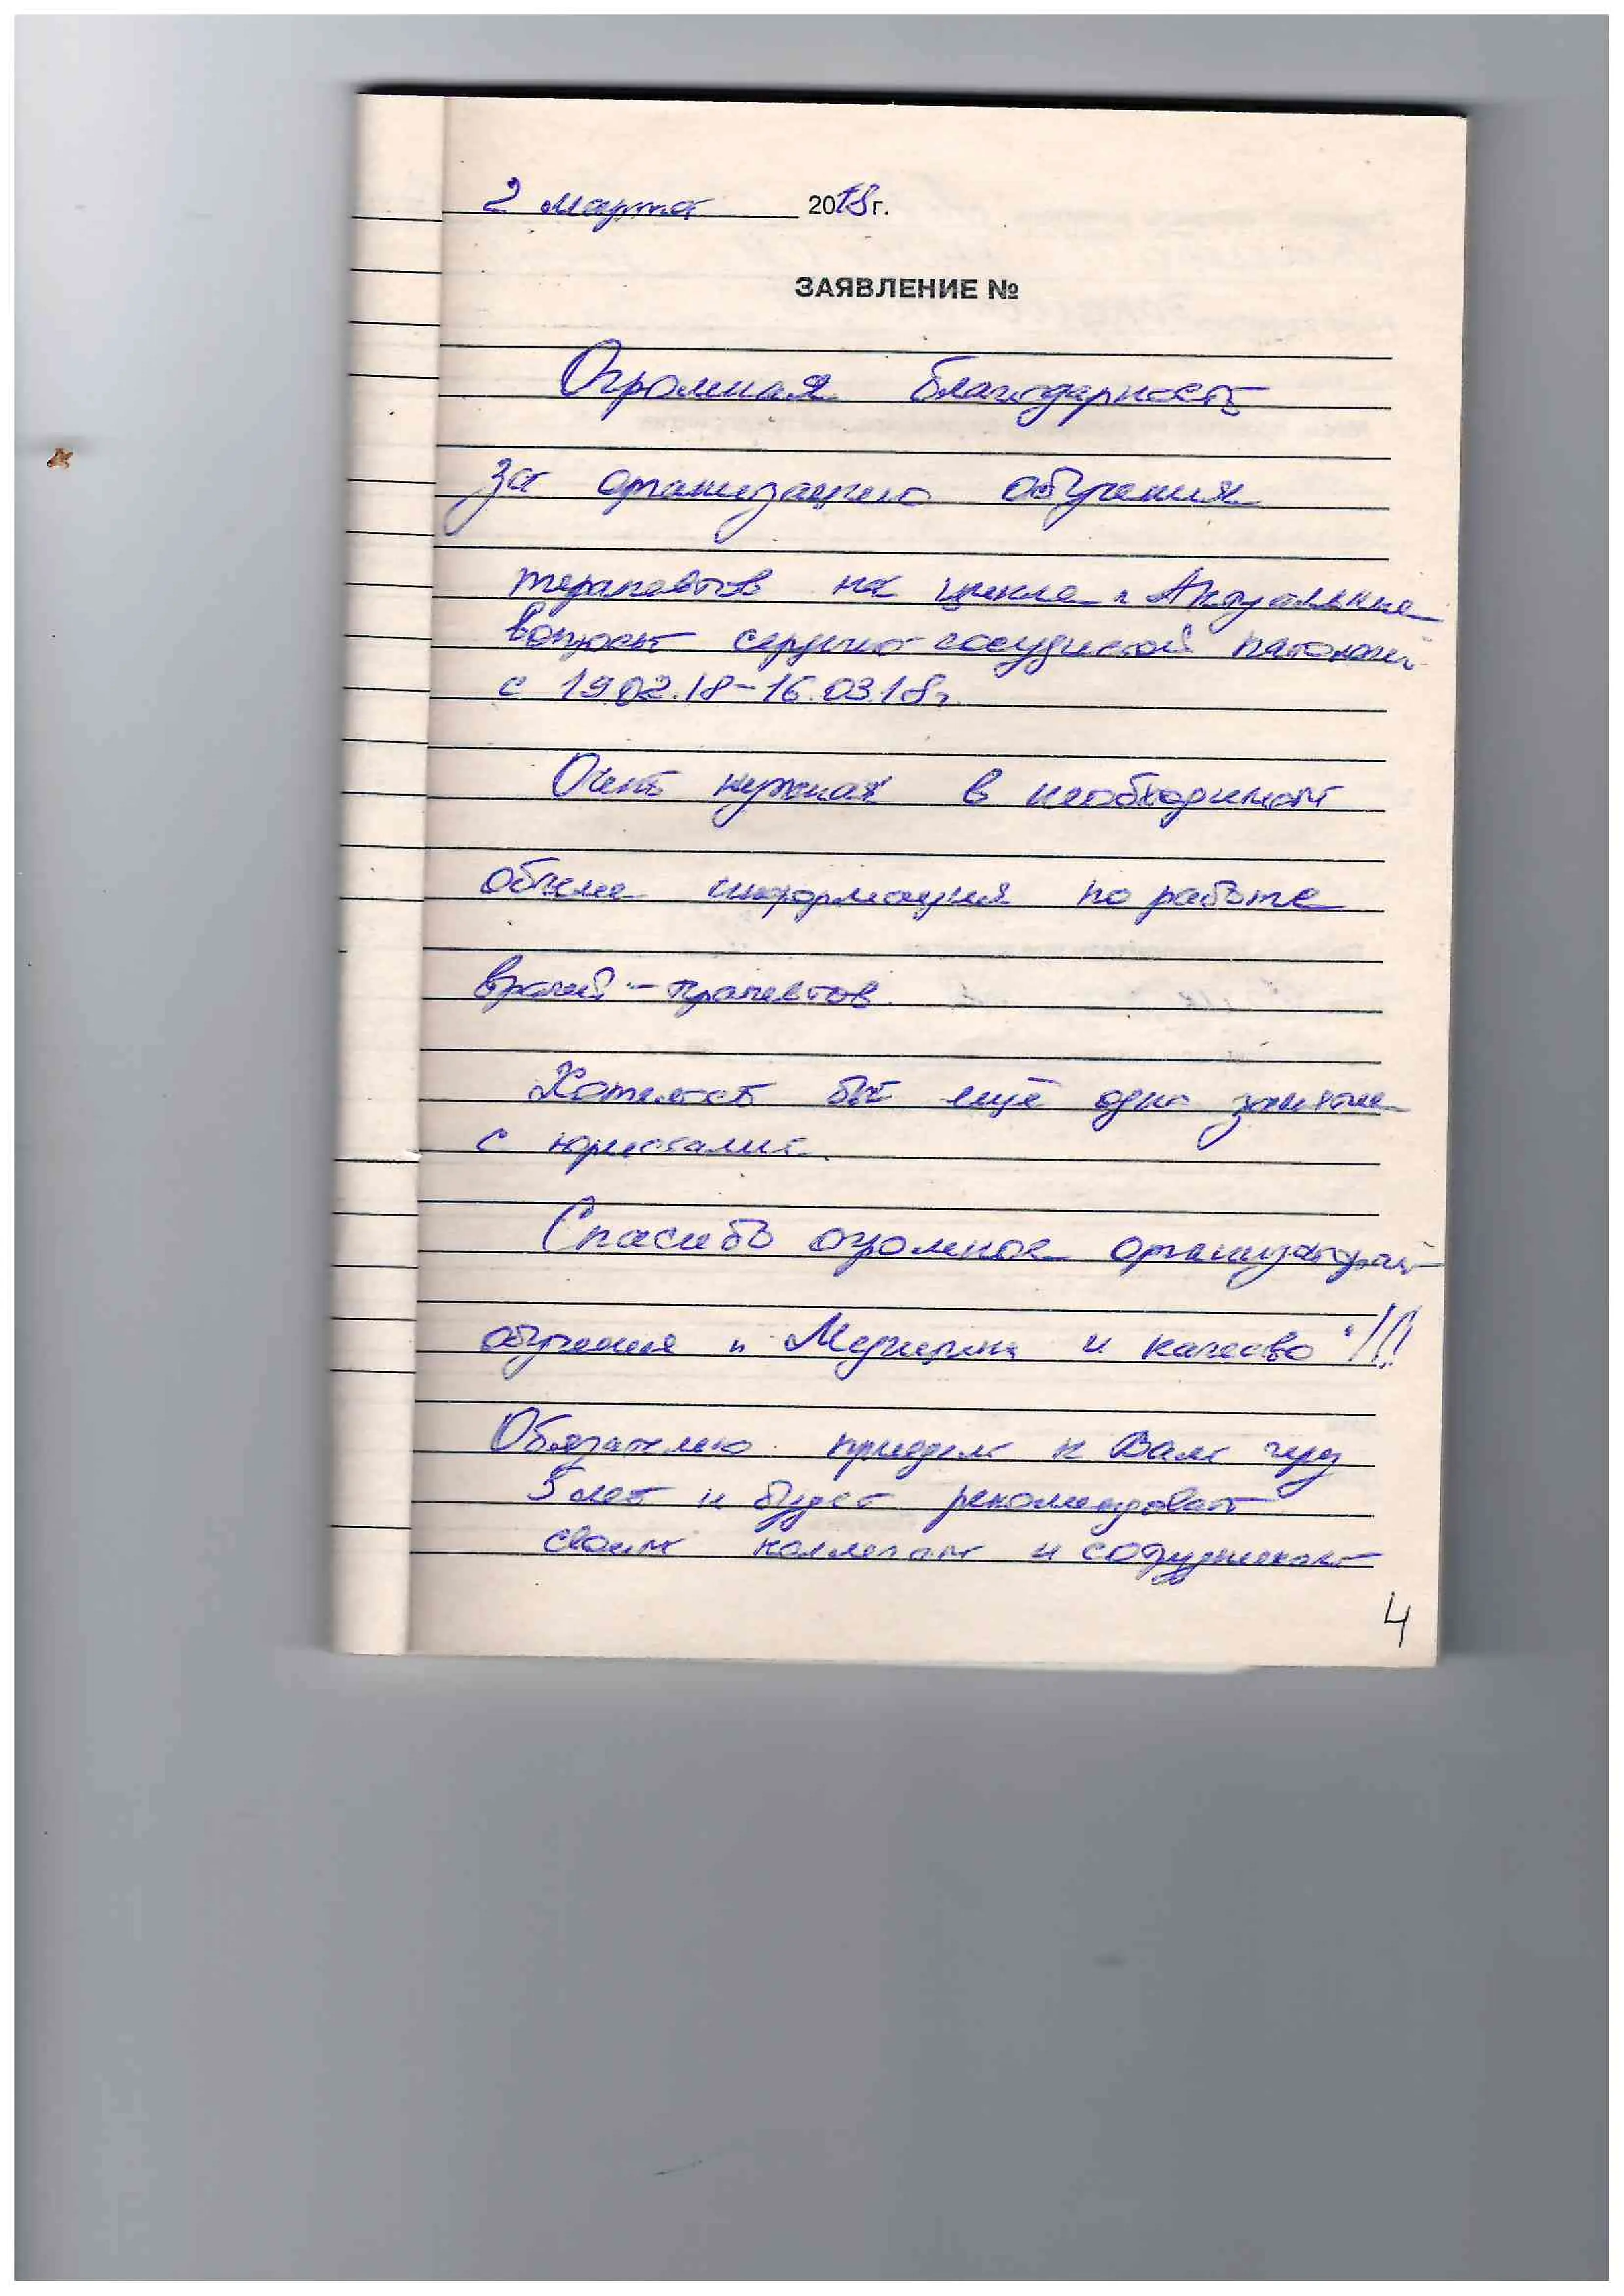 2 марта 2018 г.
ЗАЯВЛЕНИЕ №
Огромная благодарность
за организацию обучения
терапевтов на цикле "Актуальные
вопросы сердечно-сосудистой патологии
с 19.02.18-16.03.18г.
Очень нужная в необходимом
объеме информация по работе
врачей-терапевтов.
Хотелось бы ещё одно занятие
с юристами.
Спасибо огромное организаторам
обучения "Медицина и качество"!!!
Обязательно придем к Вам через
5 лет и будем рекомендовать
своим коллегам и сотрудникам
4